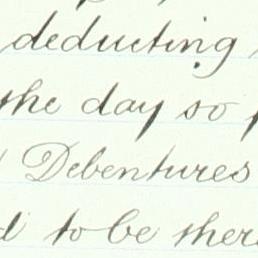 deducting
the day so
Debentures
to be